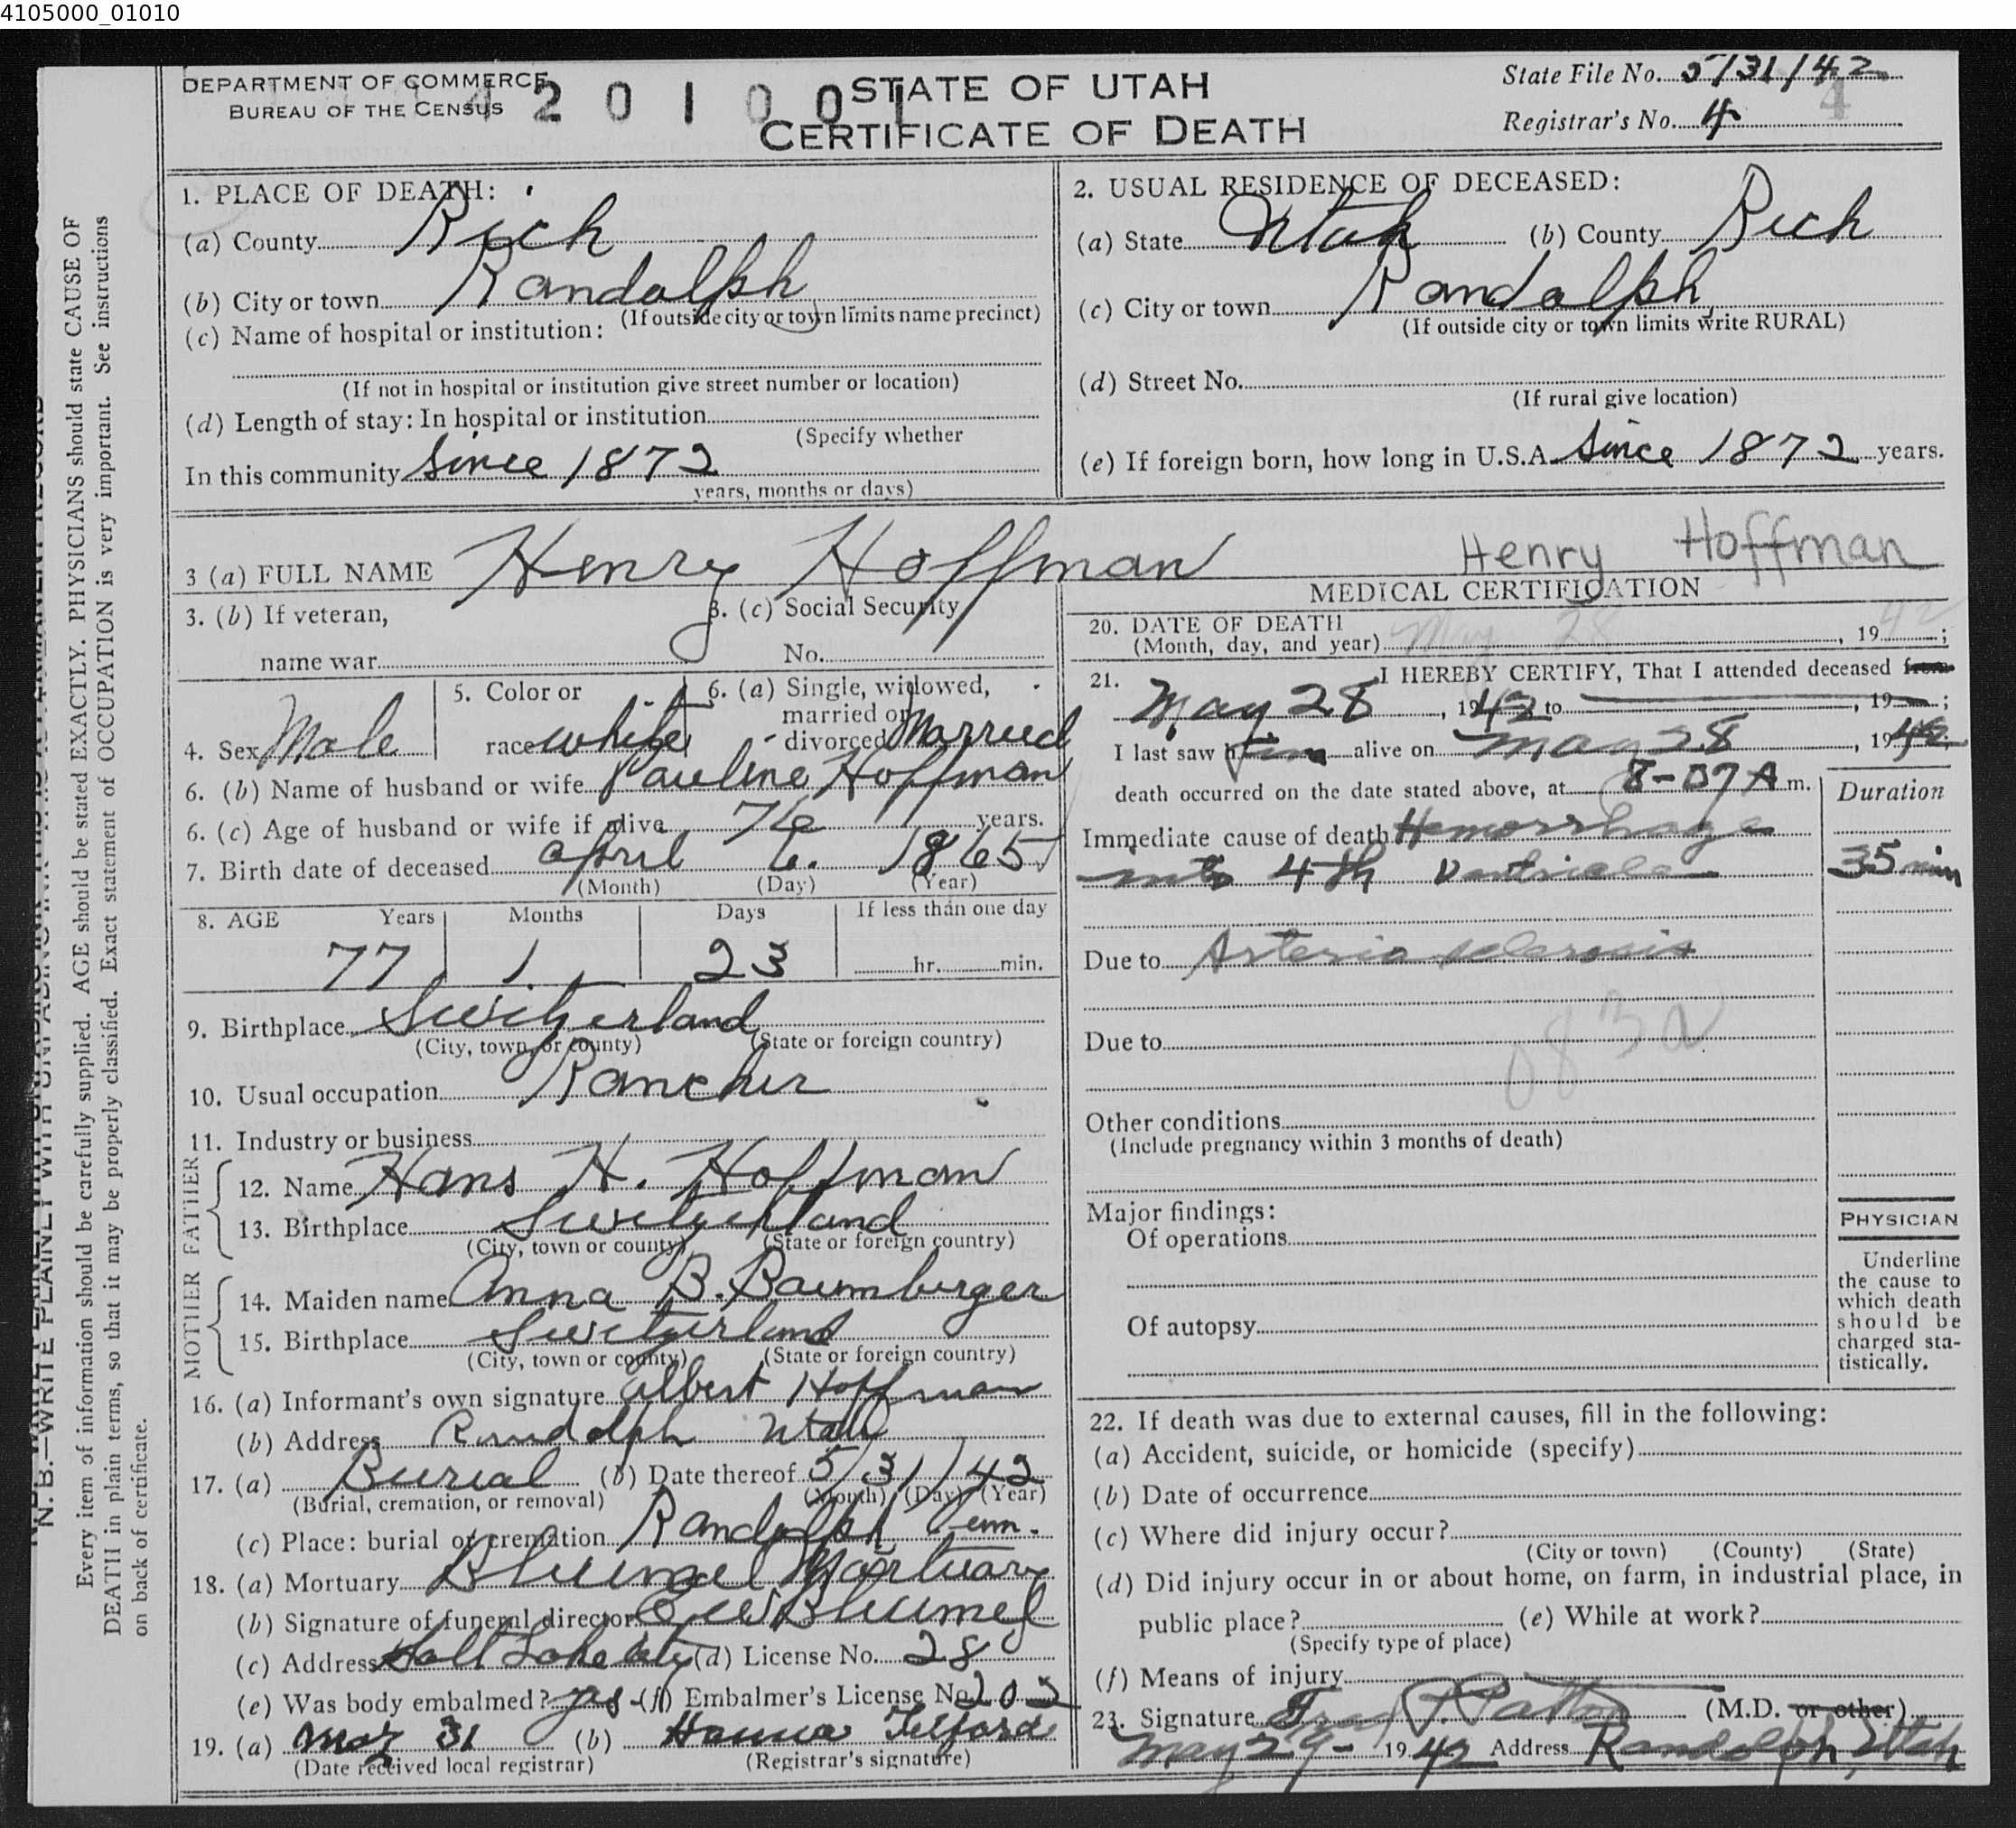 4105000_01010
DEPARTMENT OF COMMERCE
BUREAU OF THE CENSUS
4 2 0 1 0 0 1
STATE OF UTAH
CERTIFICATE OF DEATH
State File No. 5/31/42
Registrar's No. 4
4
1. PLACE OF DEATH:
(a) County Rich
(b) City or town Randolph
(If outside city or town limits name precinct)
(c) Name of hospital or institution:
(If not in hospital or institution give street number or location)
(d) Length of stay: In hospital or institution
(Specify whether
In this community Since 1872
years, months or days)
2. USUAL RESIDENCE OF DECEASED:
(a) State Utah (b) County Rich
(c) City or town Randolph
(If outside city or town limits write RURAL)
(d) Street No.
(If rural give location)
(e) If foreign born, how long in U.S.A. Since 1872 years.
3 (a) FULL NAME Henry Hoffman
Henry Hoffman
3. (b) If veteran,
name war
3. (c) Social Security
No.
4. Sex Male
5. Color or
race white
6. (a) Single, widowed,
married or
divorced Married
6. (b) Name of husband or wife Pauline Hoffman
6. (c) Age of husband or wife if alive 76 years.
7. Birth date of deceased April 6. 1865
(Month) (Day) (Year)
8. AGE Years Months Days If less than one day
77 1 23 hr. min.
9. Birthplace Switzerland
(City, town, or county) (State or foreign country)
10. Usual occupation Rancher
11. Industry or business
FATHER
12. Name Hans H. Hoffman
13. Birthplace Switzerland
(City, town or county) (State or foreign country)
MOTHER
14. Maiden name Anna B. Baumburger
15. Birthplace Switzerland
(City, town or county) (State or foreign country)
16. (a) Informant's own signature Albert Hoffman
(b) Address Randolph Utah
17. (a) Burial (b) Date thereof 5/31/42
(Burial, cremation, or removal) (Month) (Day) (Year)
(c) Place: burial or cremation Randolph Cem.
18. (a) Mortuary Bluemel Mortuary
(b) Signature of funeral director Bluemel
(c) Address Salt Lake City (d) License No. 28
(e) Was body embalmed? yes (f) Embalmer's License No. 202
19. (a) May 31 (b) Telford
(Date received local registrar) (Registrar's signature)
MEDICAL CERTIFICATION
20. DATE OF DEATH
(Month, day, and year) May 28, 1942;
21. I HEREBY CERTIFY, That I attended deceased from
May 28, 1942 to , 19 ;
I last saw him alive on May 28, 1942
death occurred on the date stated above, at 8-07 A m.
Duration
Immediate cause of death Hemorrhage
into 4th Ventricle 35 min
Due to Arterio sclerosis
Due to
083a
Other conditions
(Include pregnancy within 3 months of death)
Major findings:
Of operations
Of autopsy
PHYSICIAN
Underline
the cause to
which death
should be
charged sta-
tistically.
22. If death was due to external causes, fill in the following:
(a) Accident, suicide, or homicide (specify)
(b) Date of occurrence
(c) Where did injury occur?
(City or town) (County) (State)
(d) Did injury occur in or about home, on farm, in industrial place, in
public place? (e) While at work?
(Specify type of place)
(f) Means of injury
23. Signature (M.D. or other)
May 29- 1942 Address Randolph, Utah
N. B.—WRITE PLAINLY WITH UNFADING INK
Every item of information should be carefully supplied. AGE should be stated EXACTLY. PHYSICIANS should state CAUSE OF
DEATH in plain terms, so that it may be properly classified. Exact statement of OCCUPATION is very important. See instructions
on back of certificate.